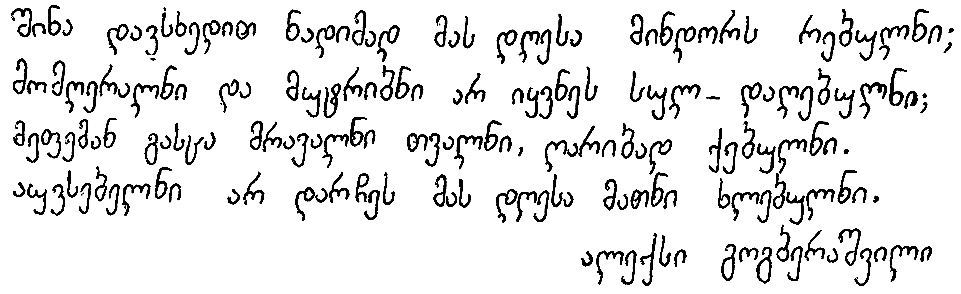 შინა დავსხედით ნადიმად მას დღესა მინდორს რებულნი;
მომღერალნი და მუტრიბნი არ იყვნეს სულ- დაღებულნი;
მეფემან გასცა მრავალნი თვალნი, ღარიბად ქებულნი.
აუვსებელნი არ დარჩეს მას დღესა მათნი ხლებულნი.
ალექსი გოგბერაშვილი